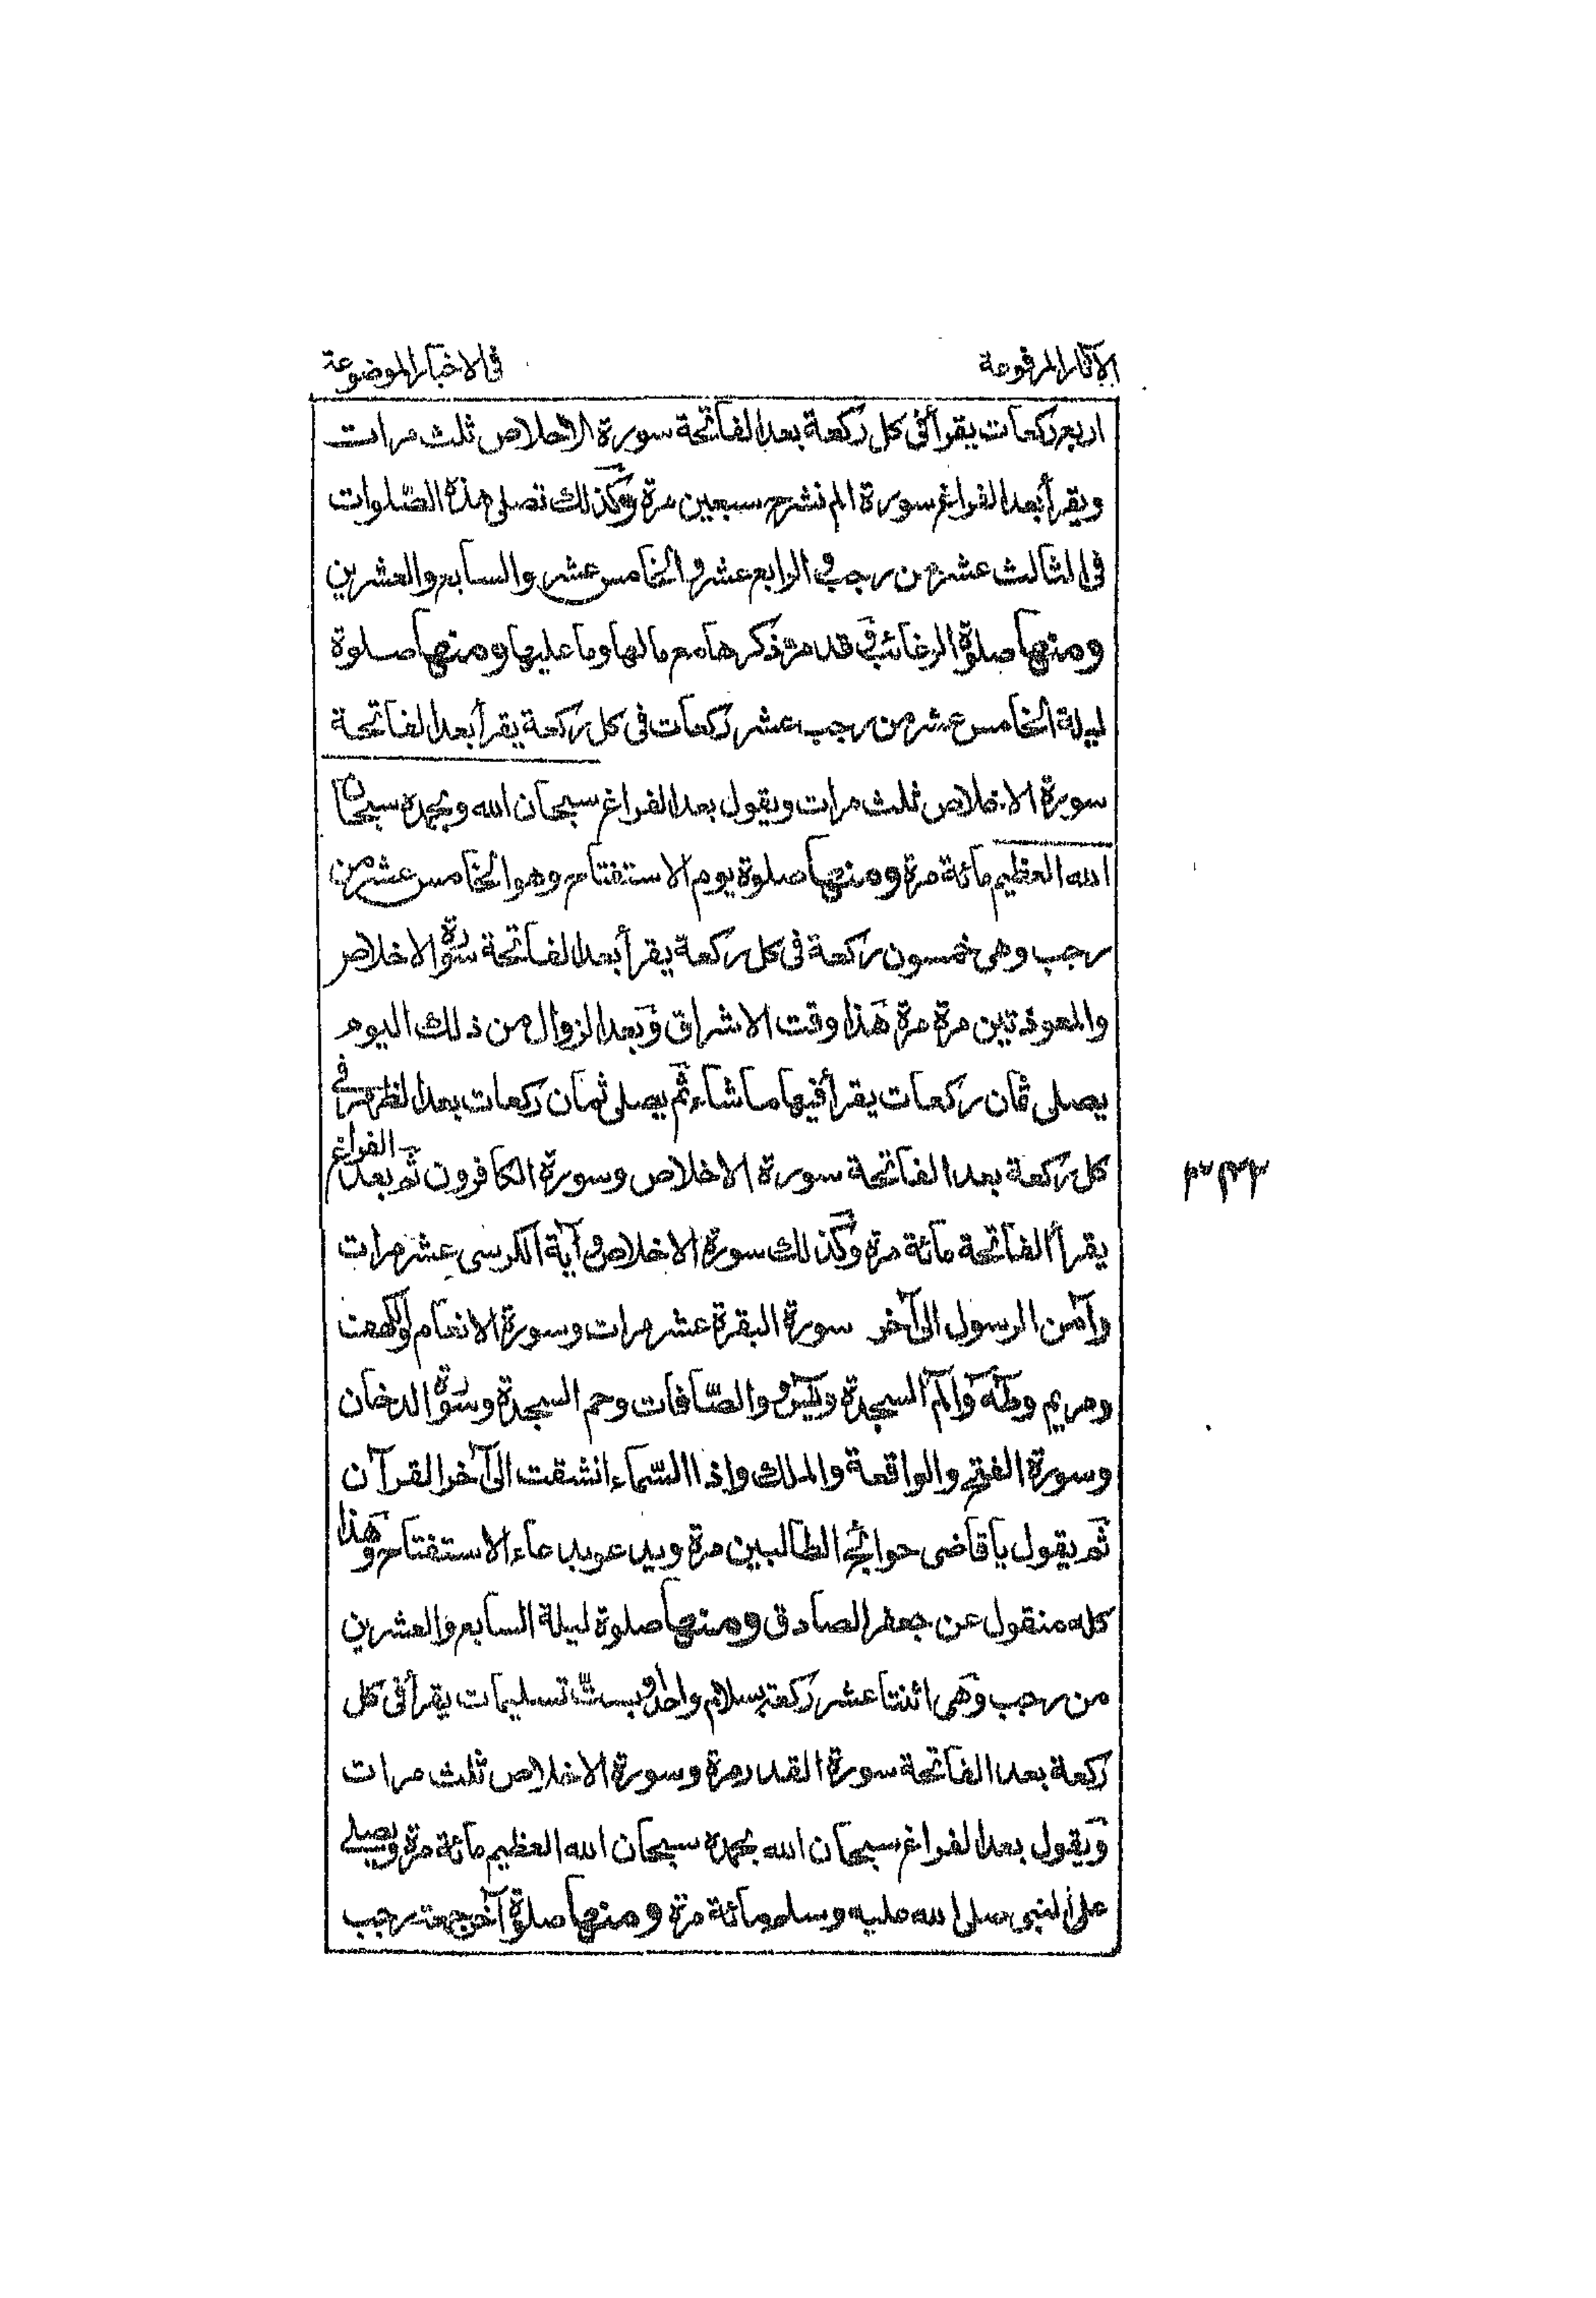 الآثار المرفوعة
فى الاخبار الموضوعة
اربع ركعات يقرأ فى كل ركعة بعد الفاتحة سورة الاخلاص ثلث مرات
ويقرأ بعد الفراغ سورة الم نشرح سبعين مرة وكذلك تصلى هذه الصّلوات
فى الثالث عشر من رجب وفى الرابع عشر والخامس عشر والسابع والعشرين
ومنها صلوة الرغائب قد مر ذكرها مع مالها وما عليها ومنها صلوة
ليلة الخامس عشر من رجب عشر ركعات فى كل ركعة يقرأ بعد الفاتحة
سورة الاخلاص ثلث مرات ويقول بعد الفراغ سبحان الله وبحمده سبحان
الله العظيم مائة مرة ومنها صلوة يوم الاستفتاح وهو الخامس عشر من
رجب وهى خمسون ركعة فى كل ركعة يقرأ بعد الفاتحة سورة الاخلاص
والمعوذتين مرة مرة هذا وقت الاشراق وبعد الزوال من ذلك اليوم
يصلى ثمان ركعات يقرأ فيها ما شاء ثم يصلى ثمان ركعات بعد الظهر فى
كل ركعة بعد الفاتحة سورة الاخلاص وسورة الكافرون ثم بعد الفراغ
يقرأ الفاتحة مائة مرة وكذلك سورة الاخلاص وآية الكرسى عشر مرات
وآمن الرسول الى آخر سورة البقرة عشر مرات وسورة الانعام والكهف
ومريم وطه والم السجدة ويٰس والصّافات وحم السجدة وسورة الدخان
وسورة الفتح والواقعة والملك واذا السّماء انشقت الى آخر القرآن
ثم يقول يا قاضى حوائج الطالبين مرة ويدعو بدعاء الاستفتاح وهذا
كله منقول عن جعفر الصادق ومنها صلوة ليلة السابع والعشرين
من رجب وهى اثنتا عشر ركعة بسلام واحد وبستّ تسليمات يقرأ فى كل
ركعة بعد الفاتحة سورة القدر مرة وسورة الاخلاص ثلث مرات
ويقول بعد الفراغ سبحان الله بحمده سبحان الله العظيم مائة مرة ويصلى
على النبى صلى الله عليه وسلم مائة مرة ومنها صلوة آخر جمعة رجب